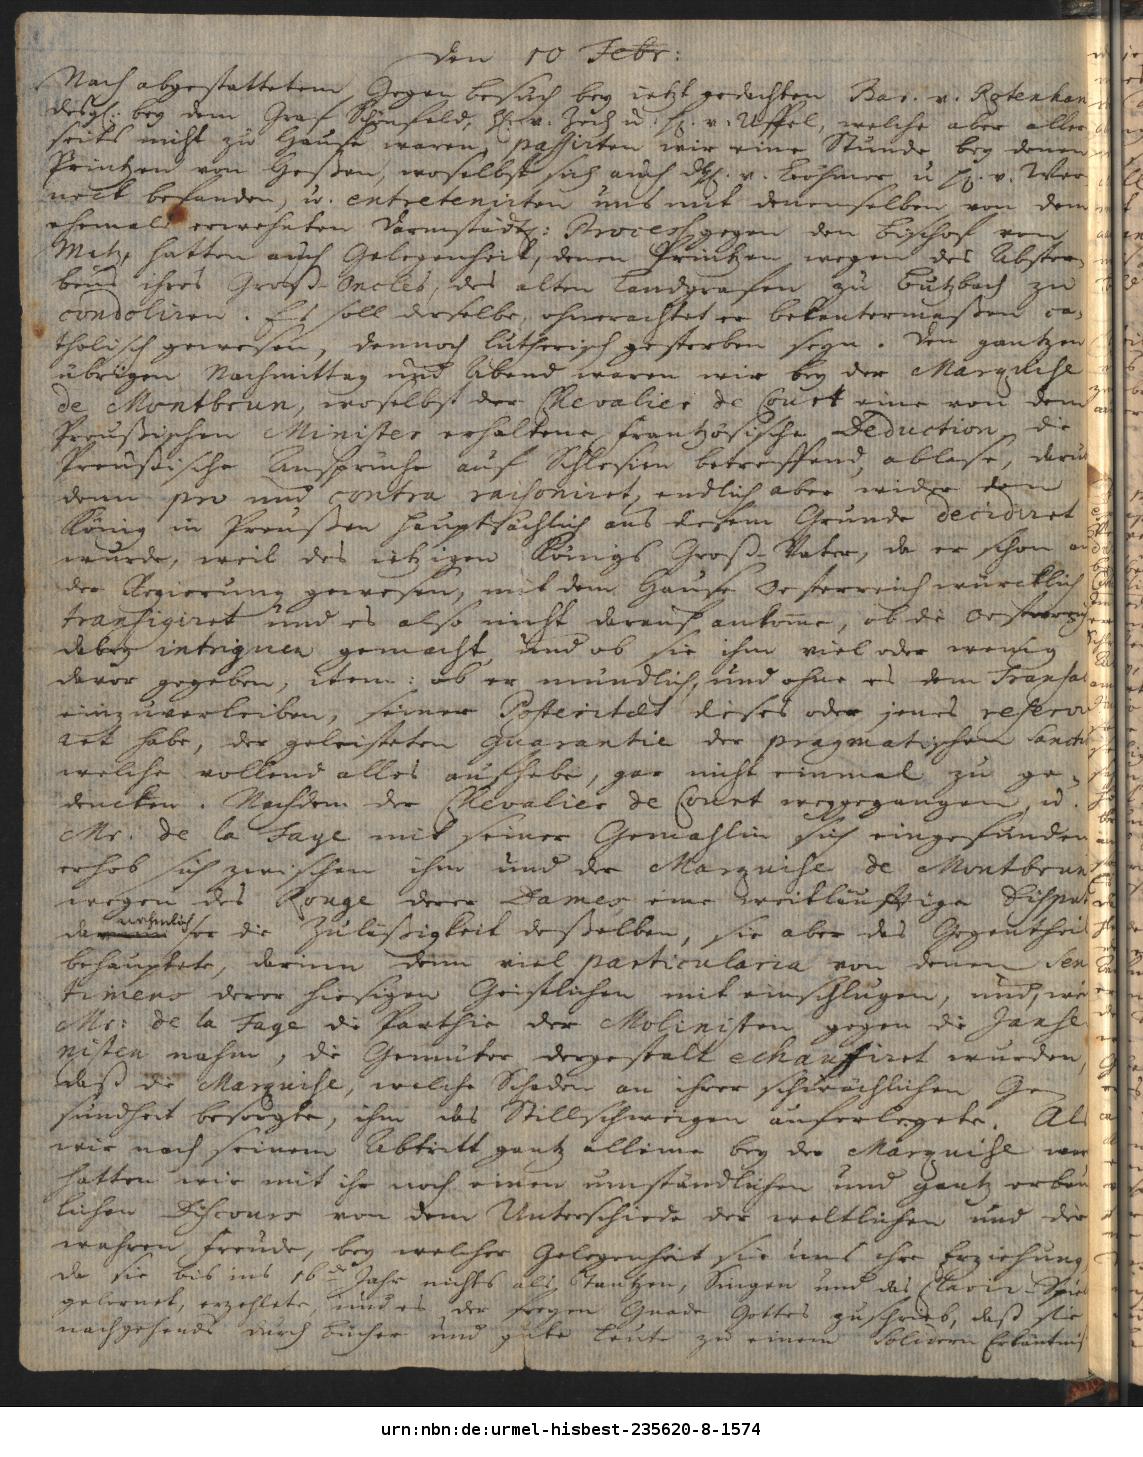 den 10 Febr:
Nach abgestattetem Gegen besuch bey ietzt gedachten Bar. v. Rotenhan
desgl. bey dem Graf Schönfeld, H. v. Zech u. H. v. Uffel, welche aber aller
seits nicht zu Hause waren, passirten wir eine Stunde bey denen
Printzen von Heßen, woselbst sich auch H. v. Böhmer u H. v. Wer
neck befanden, u. entretenirten uns mit denenselben von dem
ehemals erwehnten Darmstädt: Process gegen den Bischof von
Metz, hatten auch Gelegenheit, denen Printzen wegen des Abster-
bens ihres Groß-Oncles, des alten Landgrafen zu Butzbach zu
condoliren. Es soll derselbe, ohnerachtet er bekantermaßen ca-
tholisch gewesen, dennoch lutherisch gestorben seyn. Den gantzen
übrigen Nachmittag und Abend waren wir bey der Marquise
de Montbrun, woselbst der Chevalier de Court eine von dem
Preußischen Minister erhaltene frantzösische Deduction die
Preußische Ansprüche auf Schlesien betreffend, ablase,
denn pro und contra raisoniret, endlich aber wider den
König in Preußen hauptsächlich aus diesem Grunde decidiret
wurde, weil des ietzigen Königs Groß-Vater, da er schon an
der Regierung gewesen, mit dem Hause Oesterreich würcklich
transigiret und es also nicht darauf ankome, ob die Oesterreich
dabey intriguen gemacht, und ob sie ihm viel oder wenig
davor gegeben, item: ob er mündlich, und ohne es dem Transa
einzuverleiben, seiner Posteritæt dieses oder jenes reservi
ret habe, der geleisteten guarantie der pragmatischen Sancti
welche vollend alles aufhebe, gar nicht einmal zu ge-
dencken. Nachdem der Chevalier de Court weggegangen, u.
Mr. de la Faye mit seiner Gemahlin sich eingefunden
erhob sich zwischen ihm und der Marquise de Montbrun
wegen des Rouge derer Dames eine weitläufftige Disput
da nehmlich er die Zuläßigkeit deßelben, sie aber das Gegentheil
behauptete, darinn denn viel particularia von denen Sen
timens derer hiesigen Geistlichen mit einschlugen, und, wie
Mr: de la Faye die Parthie der Molinisten gegen die Janse
nisten nahm, die Gemüter dergestalt echauffiret wurden,
daß die Marquise, welche Schaden an ihrer schwächlichen Ge-
sundheit besorgte, ihm das Stillschweigen auferlegete. Als
wir nach seinem Abtritt gantz alleine bey der Marquise war
hatten wir mit ihr noch einen umständlichen und gantz erbau
lichen Discours von dem Unterschiede der weltlichen und der
wahren Freude, bey welcher Gelegenheit sie uns ihre Erziehung
da sie bis ins 16de Jahr nichts als Tantzen, Singen und das Clavir-Spie
gelernet, erzehlete, und es der freyen Gnade Gottes zuschrieb, daß sie
nachgehends durch Bücher und gute Leute zu einem Solidern Erkäntniß
urn:nbn:de:urmel-hisbest-235620-8-1574